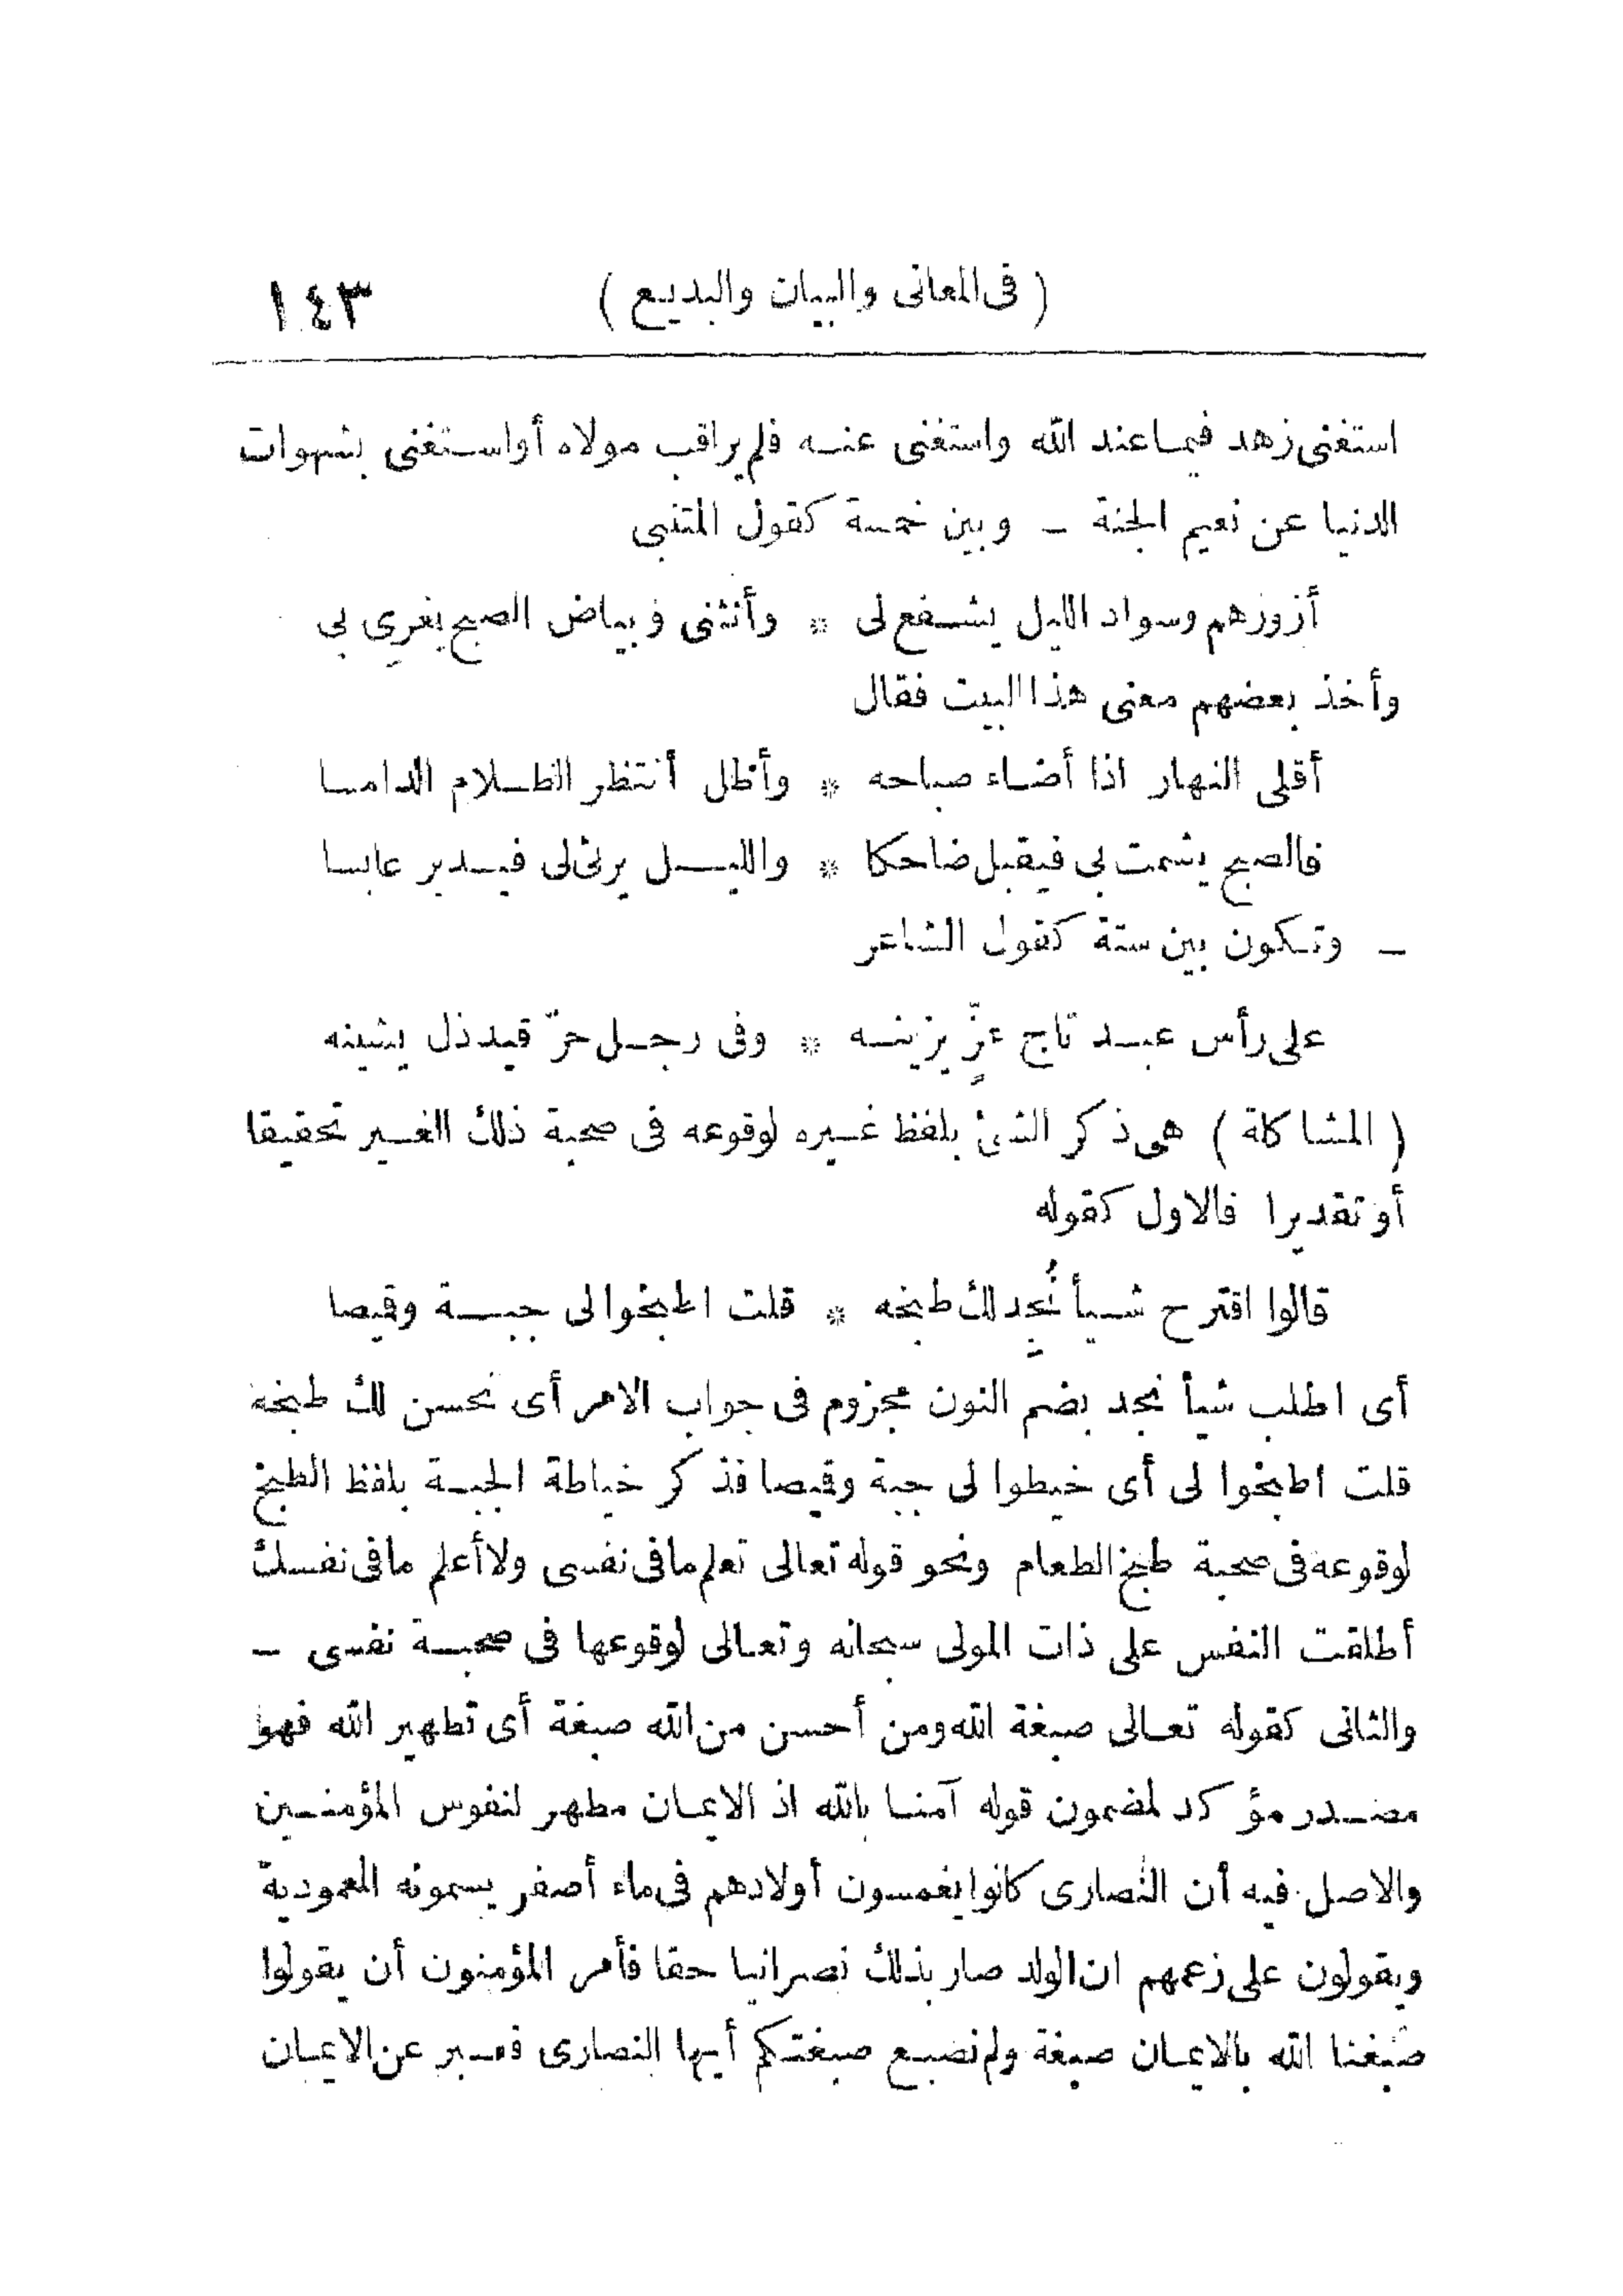 ( فى المعانى والبيان والبديع ) ١٤٣
استغنى زهد فيما عند الله واستغنى عنه فلم يراقب مولاه أواستغنى بشهوات
الدنيا عن نعيم الجنة ـ وبين خمسة كقول المتنبى
أزورهم وسواد الليل يشفع لى * وأنثنى وبياض الصبح يغرِى بى
وأخذ بعضهم معنى هذا البيت فقال
أقلى النهار اذا أضاء صباحه * وأظل أنتظر الظلام الدامسا
فالصبح يشمت بى فيقبل ضاحكا * والليل يرثى لى فيدبر عابسا
ـ وتكون بين ستة كقول الشاعر
على رأس عبد تاج عزٍّ يزينه * وفى رجل حرّ قيد ذل يشينه
( المشاكلة ) هى ذكر الشئ بلفظ غيره لوقوعه فى صحبة ذلك الغير تحقيقا
أو تقديرا فالاول كقوله
قالوا اقترح شيأ نُجِد لك طبخه * قلت اطبخوا لى جبة وقيصا
أى اطلب شيأ نجد بضم النون مجزوم فى جواب الامر أى نحسن لك طبخه
قلت اطبخوا لى أى خيطوا لى جبة وقيصا فذكر خياطة الجبة بلفظ الطبخ
لوقوعه فى صحبة طبخ الطعام ونحو قوله تعالى تعلم ما فى نفسى ولا أعلم ما فى نفسك
أطلقت النفس على ذات المولى سبحانه وتعالى لوقوعها فى صحبة نفسى ـ
والثانى كقوله تعالى صبغة الله ومن أحسن من الله صبغة أى تطهير الله فهو
مصدر مؤكد لمضمون قوله آمنا بالله اذ الايمان مطهر لنفوس المؤمنين
والاصل فيه أن النصارى كانوا يغمسون أولادهم فى ماء أصفر يسمونه المعمودية
ويقولون على زعمهم ان الولد صار بذلك نصرانيا حقا فأمر المؤمنون أن يقولوا
صبغنا الله بالايمان صبغة ولم نصبع صبغتكم أيها النصارى فعبر عن الايمان